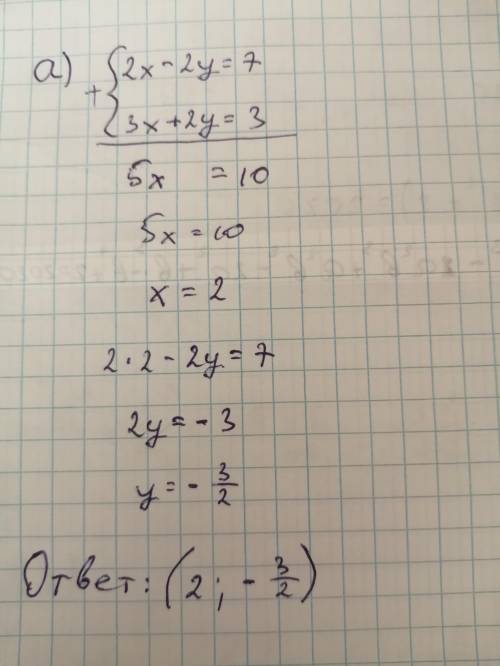 а) + { 2x - 2y = 7
3x + 2y = 3
5x = 10
5x = 10
x = 2
2 · 2 - 2y = 7
2y = - 3
y = - 3/2
Ответ: (2; - 3/2)